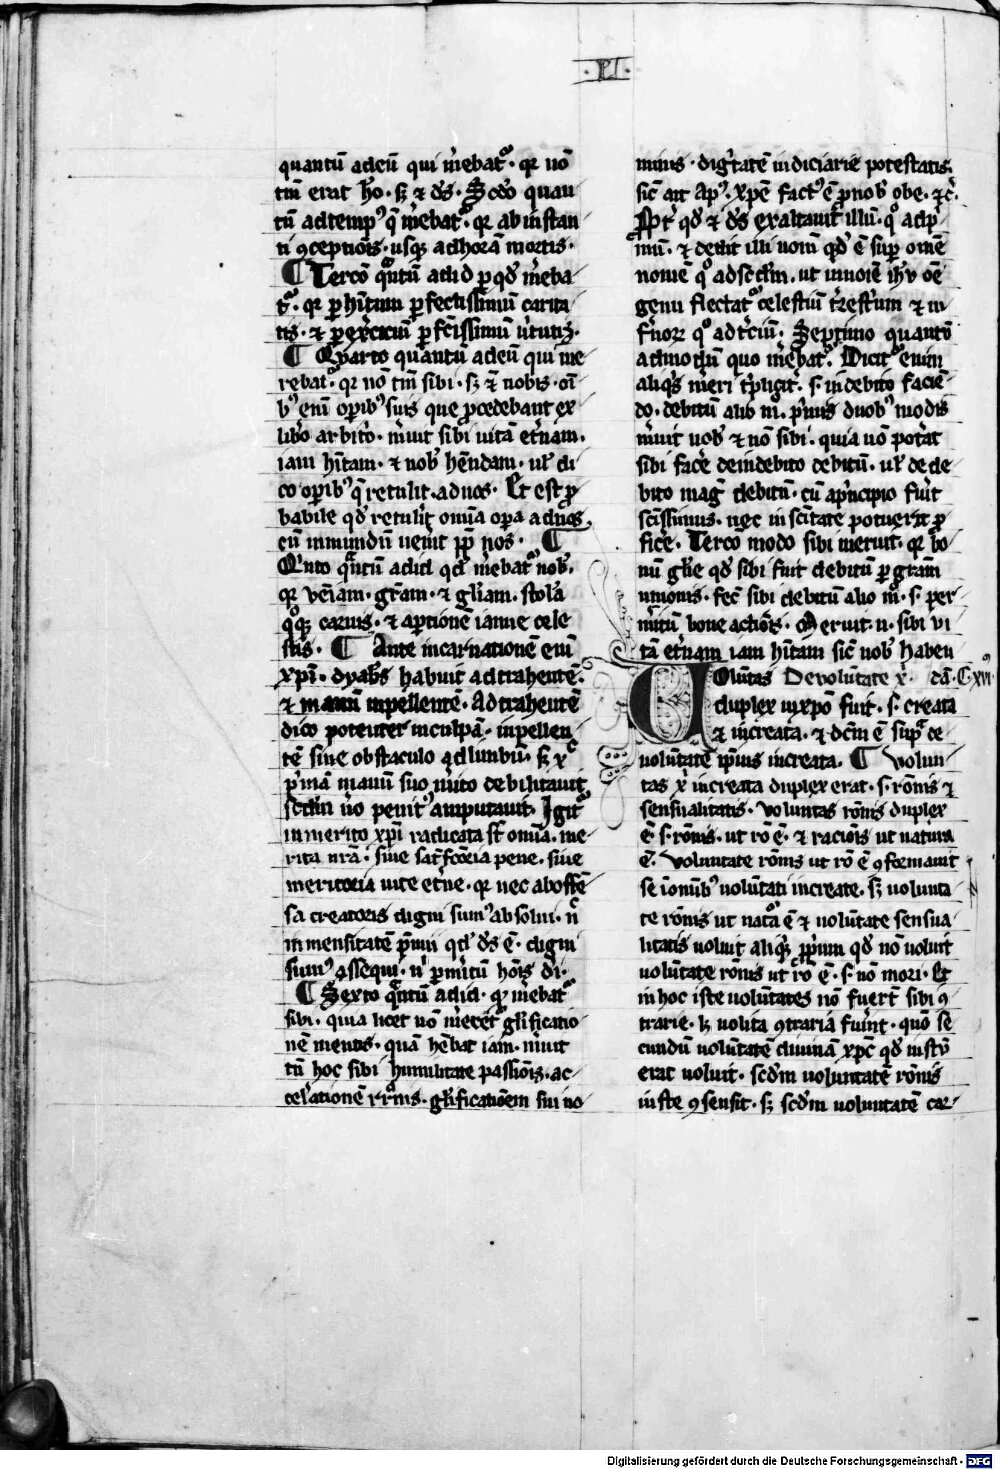 ·VI·
quantū ad eū qui m̄ebat᷑ · q̄r nō
tm̄ erat hō · sꝫ ⁊ dꝰs · Scd̓o quan
tū ad tempꝰ q̄ m̄ebat᷑ · q̄r ab instan
ti ꝯceptiōis · usqꝫ ad horā mortis ·
¶ Tercō q̄ntū ad id ꝑ qd̓ m̄eba
t᷑ · q̄r ꝑ hītum ꝑfectissimū carita
tis · ⁊ ꝑ ex̄ciciū ꝑfc̄issimū ūtutꝫ ·
¶ Quarto quantū ad eū qui me
rebat᷑ · q̄r nō tm̄ sibi · sꝫ ⁊ nobis · oī
bꝰ enī oꝑibꝰ suis que ꝓcedebant ex
libero arbit̓o · m̄uit sibi uitā et̓nam ·
iam hītam · ⁊ nob̓ hēndam · ul̓ di
co oꝑibꝰ q̄ retulit ad nos · Et est ꝓ
babile qd̓ retul̓it om̄ia oꝑa ad nos,
cū in mundū uenit ꝓp̄ nos · ¶
Qīnto q̄ntū ad id qd̓ m̄ebat᷑ nob̓,
q̄r veniam · gr̄am · ⁊ gl̓iam · stola
qꝫ carnis · ⁊ aꝑtionē ianue cele
stis · ¶ Ante incarnationē enī
xp̄i · dyabl̓s habuit ad trahentē ·
⁊ manū inpellentē · Ad trahentē
dico potenter in culpā · inpellen
tē sine obstaculo ad limbū · sꝫ xp̄c
p̓mā manū suo m̓ito debilitauit
scd̓m ūo penitꝰ amputauit · Igit᷑
in merito xp̄i radicata sт̄ om̄ia · me
rita nr̄a · siue satisfc̄oria pene · siue
meritoria uite et̓ne · q̄r nec ab offē
sa creatoris digni sumꝰ absolui · n̄
in mensitatē p̄mii qd̓ dꝰs ē · digni
sumꝰ assequi · n̄ ꝑ m̓itū hōis di ·
¶ Sexto q̄ntū ad id · qd̓ m̄ebat᷑
sibi · quia licet nō m̄eret᷑ gl̓ificatio
nē mentis · quā hēbat iam · m̓uit
tn̄ hoc sibi humilitate passiōis · ac
cel̓ationē · gl̓ificatiōem sui no
minis · dig̓tatē iudiciarie potestatis.
sic̄ ait Apꝰ · xp̄c factꝰ ē ꝓ nob̓ obe · ⁊c̄ ·
Ꝓpt̓ qd̓ ⁊ dꝰs exaltauit illū · qͦ ad p̓
mū · ⁊ dedit illi nom̄ qd̓ ē suꝑ om̄e
nomē qͦ ad scd̓m · ut in noīe ih̄u oē
genu flectat᷑ celestiū t̓restium ⁊ in
f̓noꝝ qͦ ad t̓ciū · Septimo quantū
ad modū quo m̄ebat᷑ · Dicit᷑ enim
aliqͥs m̓eri t̓plicit̓ · s · indebito faciē
do · debitū alio m̄ · p̓mis duobꝰ modis
m̓uit nob̓ ⁊ nō sibi · quia nō pot̓at
sibi fac̓e de indebito debitū · ul̓ de de
bito mag̓ debitū · cū a p̓ncipio fu̓it
sc̄issimus · nec in sc̄itate potuerit ꝓ
fic̓e · Terco modo sibi meruit · q̄r bo
nū gl̓ie qd̓ sibi fuit debitū ꝑ gram
unionis · fec̄ sibi debitū alio mͦ · s · per
m̓itū bone actiōis · Meruit · n · sibi vi
tā et̓nam iam hītam sic̄ nob̓ haben
Volūtas De volūtate x̄ · cā · Cxvi
duplex in xpō fuit · s · creata
⁊ increata · ⁊ dc̄m ē supᷓ de
uolūtate ip̄ius increata · ¶ Volun
tas x̄ increata duplex erat · s · rōnis ⁊
sensualitatis · Voluntas rōnis duplex
ē · s · rōnis · ut rō ē · ⁊ raciōis ut natura
ē · Voluntate rōnis ut rō ē ꝯformauit
se ī om̄ibꝰ uolūtati increate · sꝫ uolunta
te rōnis ut nat᷑a ē ⁊ uolūtate sensua
litatis uoluit aliqͥd ꝓprium qd̓ nō uoluit
uolūtate rōnis ut rō ē · s · nō mori · Et
in hoc iste uolūtates nō fuer̄t sibi ꝯ
trarie · lꝫ uolita ꝯtraria fu̓int · quō se
cundū uolūtatē diuinā xp̄c qd̓ iustū
erat uoluit · scd̓m uoluntatē rōnis
iuste ꝯsensit · sꝫ scd̓m uoluntatē car
Digitalisierung gefördert durch die Deutsche Forschungsgemeinschaft - DFG